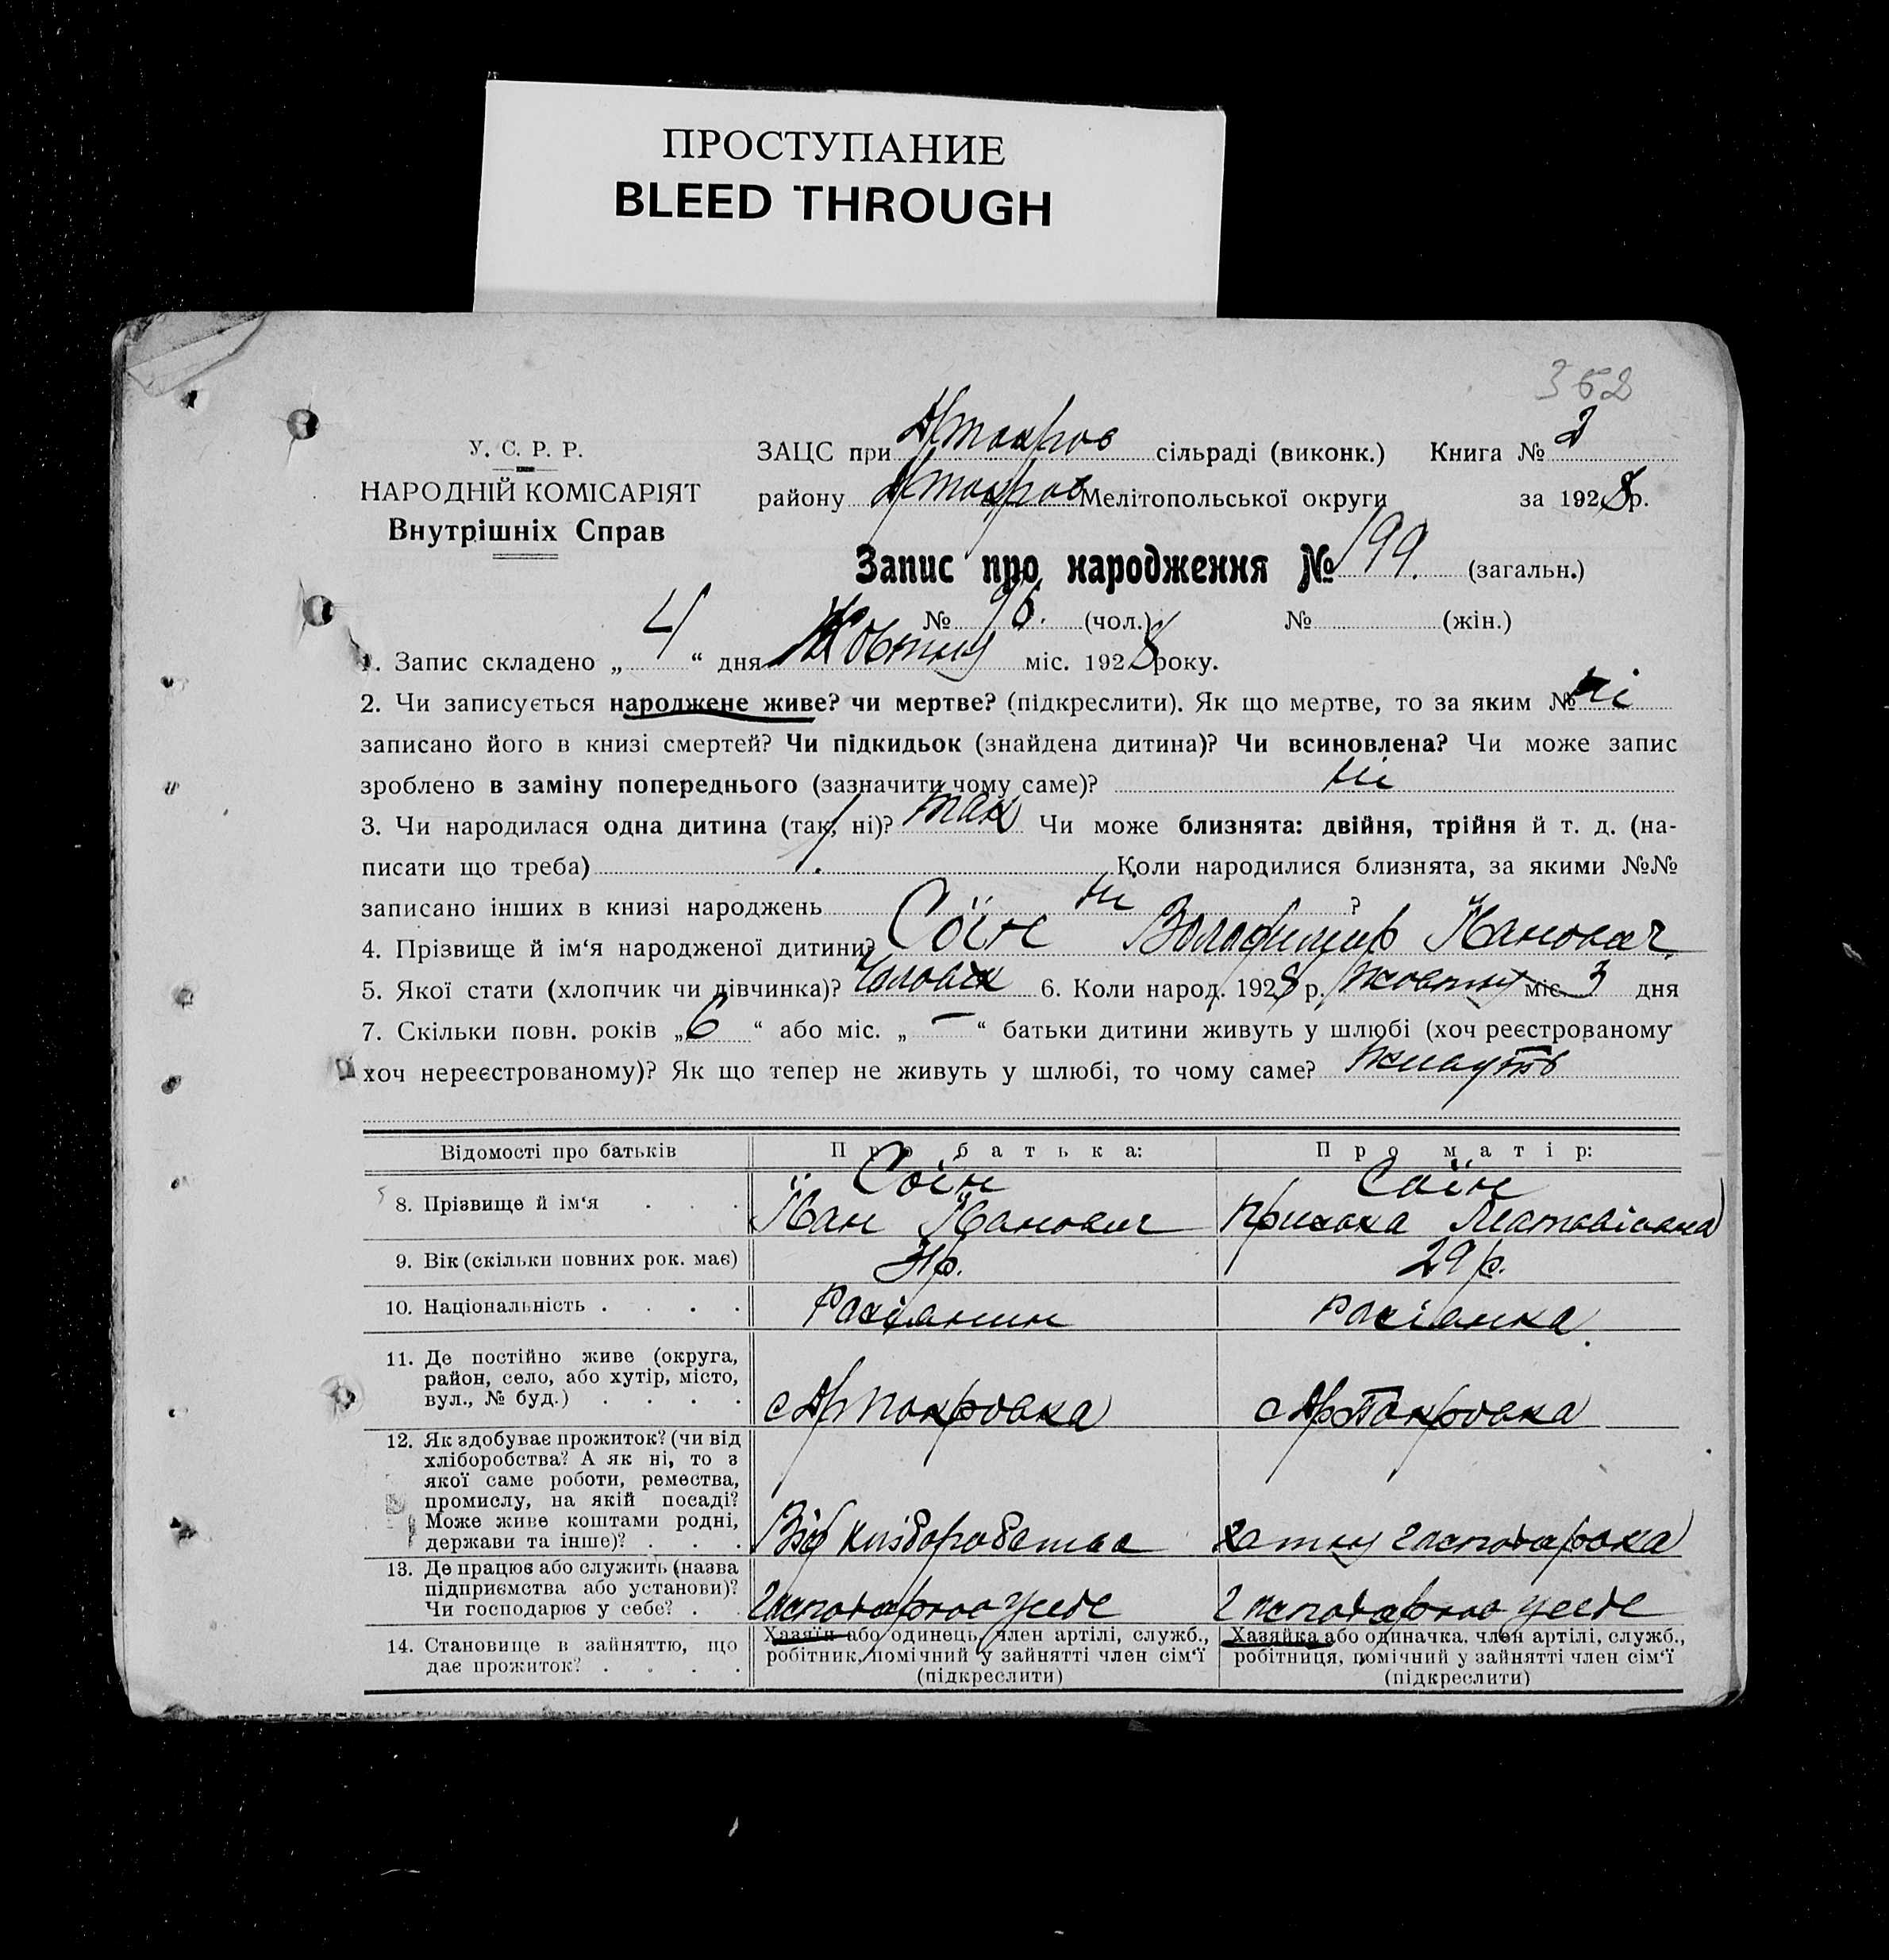 ПРОСТУПАНИЕ
BLEED THROUGH
362
У. С. Р. Р.
НАРОДНІЙ КОМІСАРІЯТ
Внутрішніх Справ
ЗАЦС при сільраді (виконк.) Книга № 2
району Мелітопольської округи за 1928 р.
Запис про народження № 199. (загальн.)
№ 96. (чол.) № (жін.)
1. Запис складено „ 4 “ дня Жовтня міс. 1928 року.
2. Чи записується народжене живе? чи мертве? (підкреслити). Як що мертве, то за яким № ні
записано його в книзі смертей? Чи підкидьок (знайдена дитина)? Чи всиновлена? Чи може запис
зроблено в заміну попереднього (зазначити чому саме)? ні
3. Чи народилася одна дитина (так, ні)? так Чи може близнята: двійня, трійня й т. д. (на-
писати що треба) Коли народилися близнята, за якими №№
записано інших в книзі народжень ні ?
4. Прізвище й ім‘я народженої дитини? Соїн Володимир Іванович
5. Якої стати (хлопчик чи дівчинка)? Чоловік 6. Коли народ. 1928 р. жовтня міс. 3 дня
7. Скільки повн. років „ 6 “ або міс. „ — “ батьки дитини живуть у шлюбі (хоч реєстрованому
хоч нереєстрованому)? Як що тепер не живуть у шлюбі, то чому саме? живуть
Відомості про батьків Про батька: Про матір:
8. Прізвище й ім‘я . . . Соїн Іван Іванович Соїн Матвіівна
9. Вік (скільки повних рок. має) 31 р. 29 р.
10. Національність . . . . Росіянин Росіанка
11. Де постійно живе (округа,
район, село, або хутір, місто,
вул., № буд.) . . . . с Ар Покровка с Ар Покровка
12. Як здобуває прожиток? (чи від
хліборобства? А як ні, то з
якої саме роботи, ремества,
промислу, на якій посаді?
Може живе коштами родні,
держави та інше)? . . . Від хліборобства хатня господарка
13. Де працює або служить (назва
підприємства або установи)?
Чи господарює у себе? . .
14. Становище в зайняттю, що
дає прожиток? . . . .
Хазяїн або одинець, член артілі, служб.,
робітник, помічний у зайнятті член сім‘ї
(підкреслити)
Хазяйка або одиначка, член артілі, служб.,
робітниця, помічний у зайнятті член сім‘ї
(підкреслити)